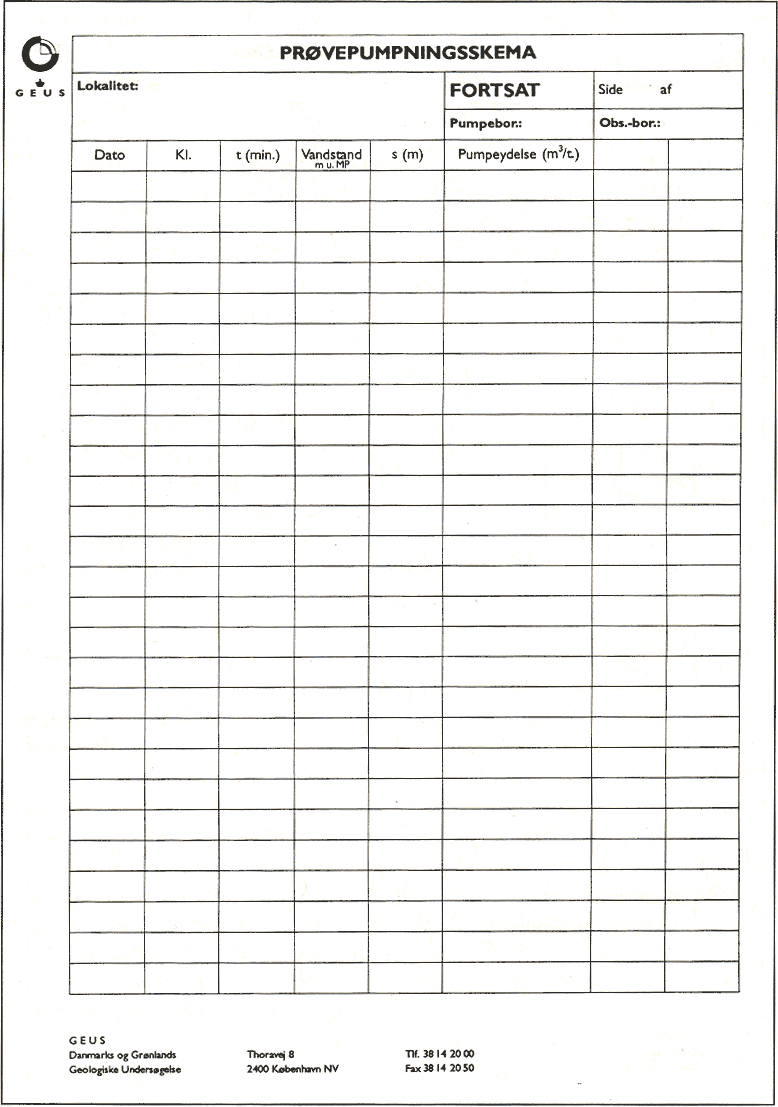 PRØVEPUMPNINGSSKEMA
GEUS
Lokalitet:
FORTSAT
Side af
Pumpebor.:
Obs.-bor.:
Dato Kl. t (min.) Vandstand s (m) Pumpeydelse (m³/t.)
m u. MP
GEUS
Danmarks og Grønlands Thoravej 8 Tlf. 38 14 20 00
Geologiske Undersøgelse 2400 København NV Fax 38 14 20 50